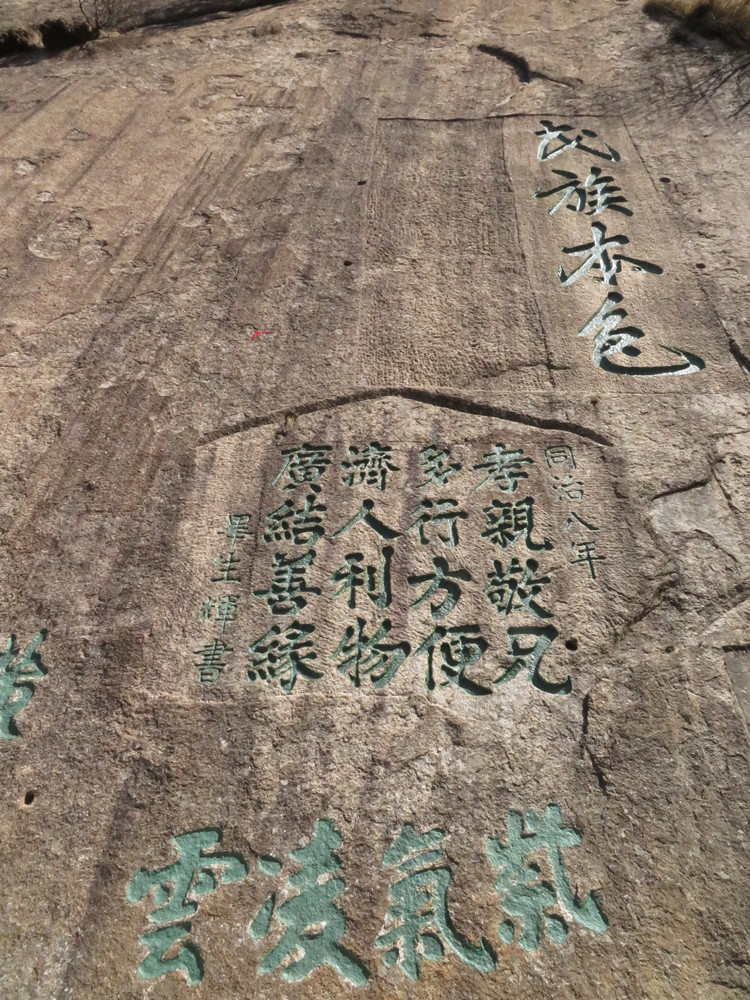 民族本色
同治八年
孝親敬兄
多行方便
濟人利物
廣結善緣
畢生輝書
紫氣凌雲